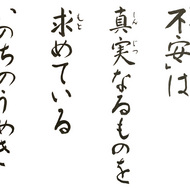 不安」は
真実なるものを
求めている
のちのうめき